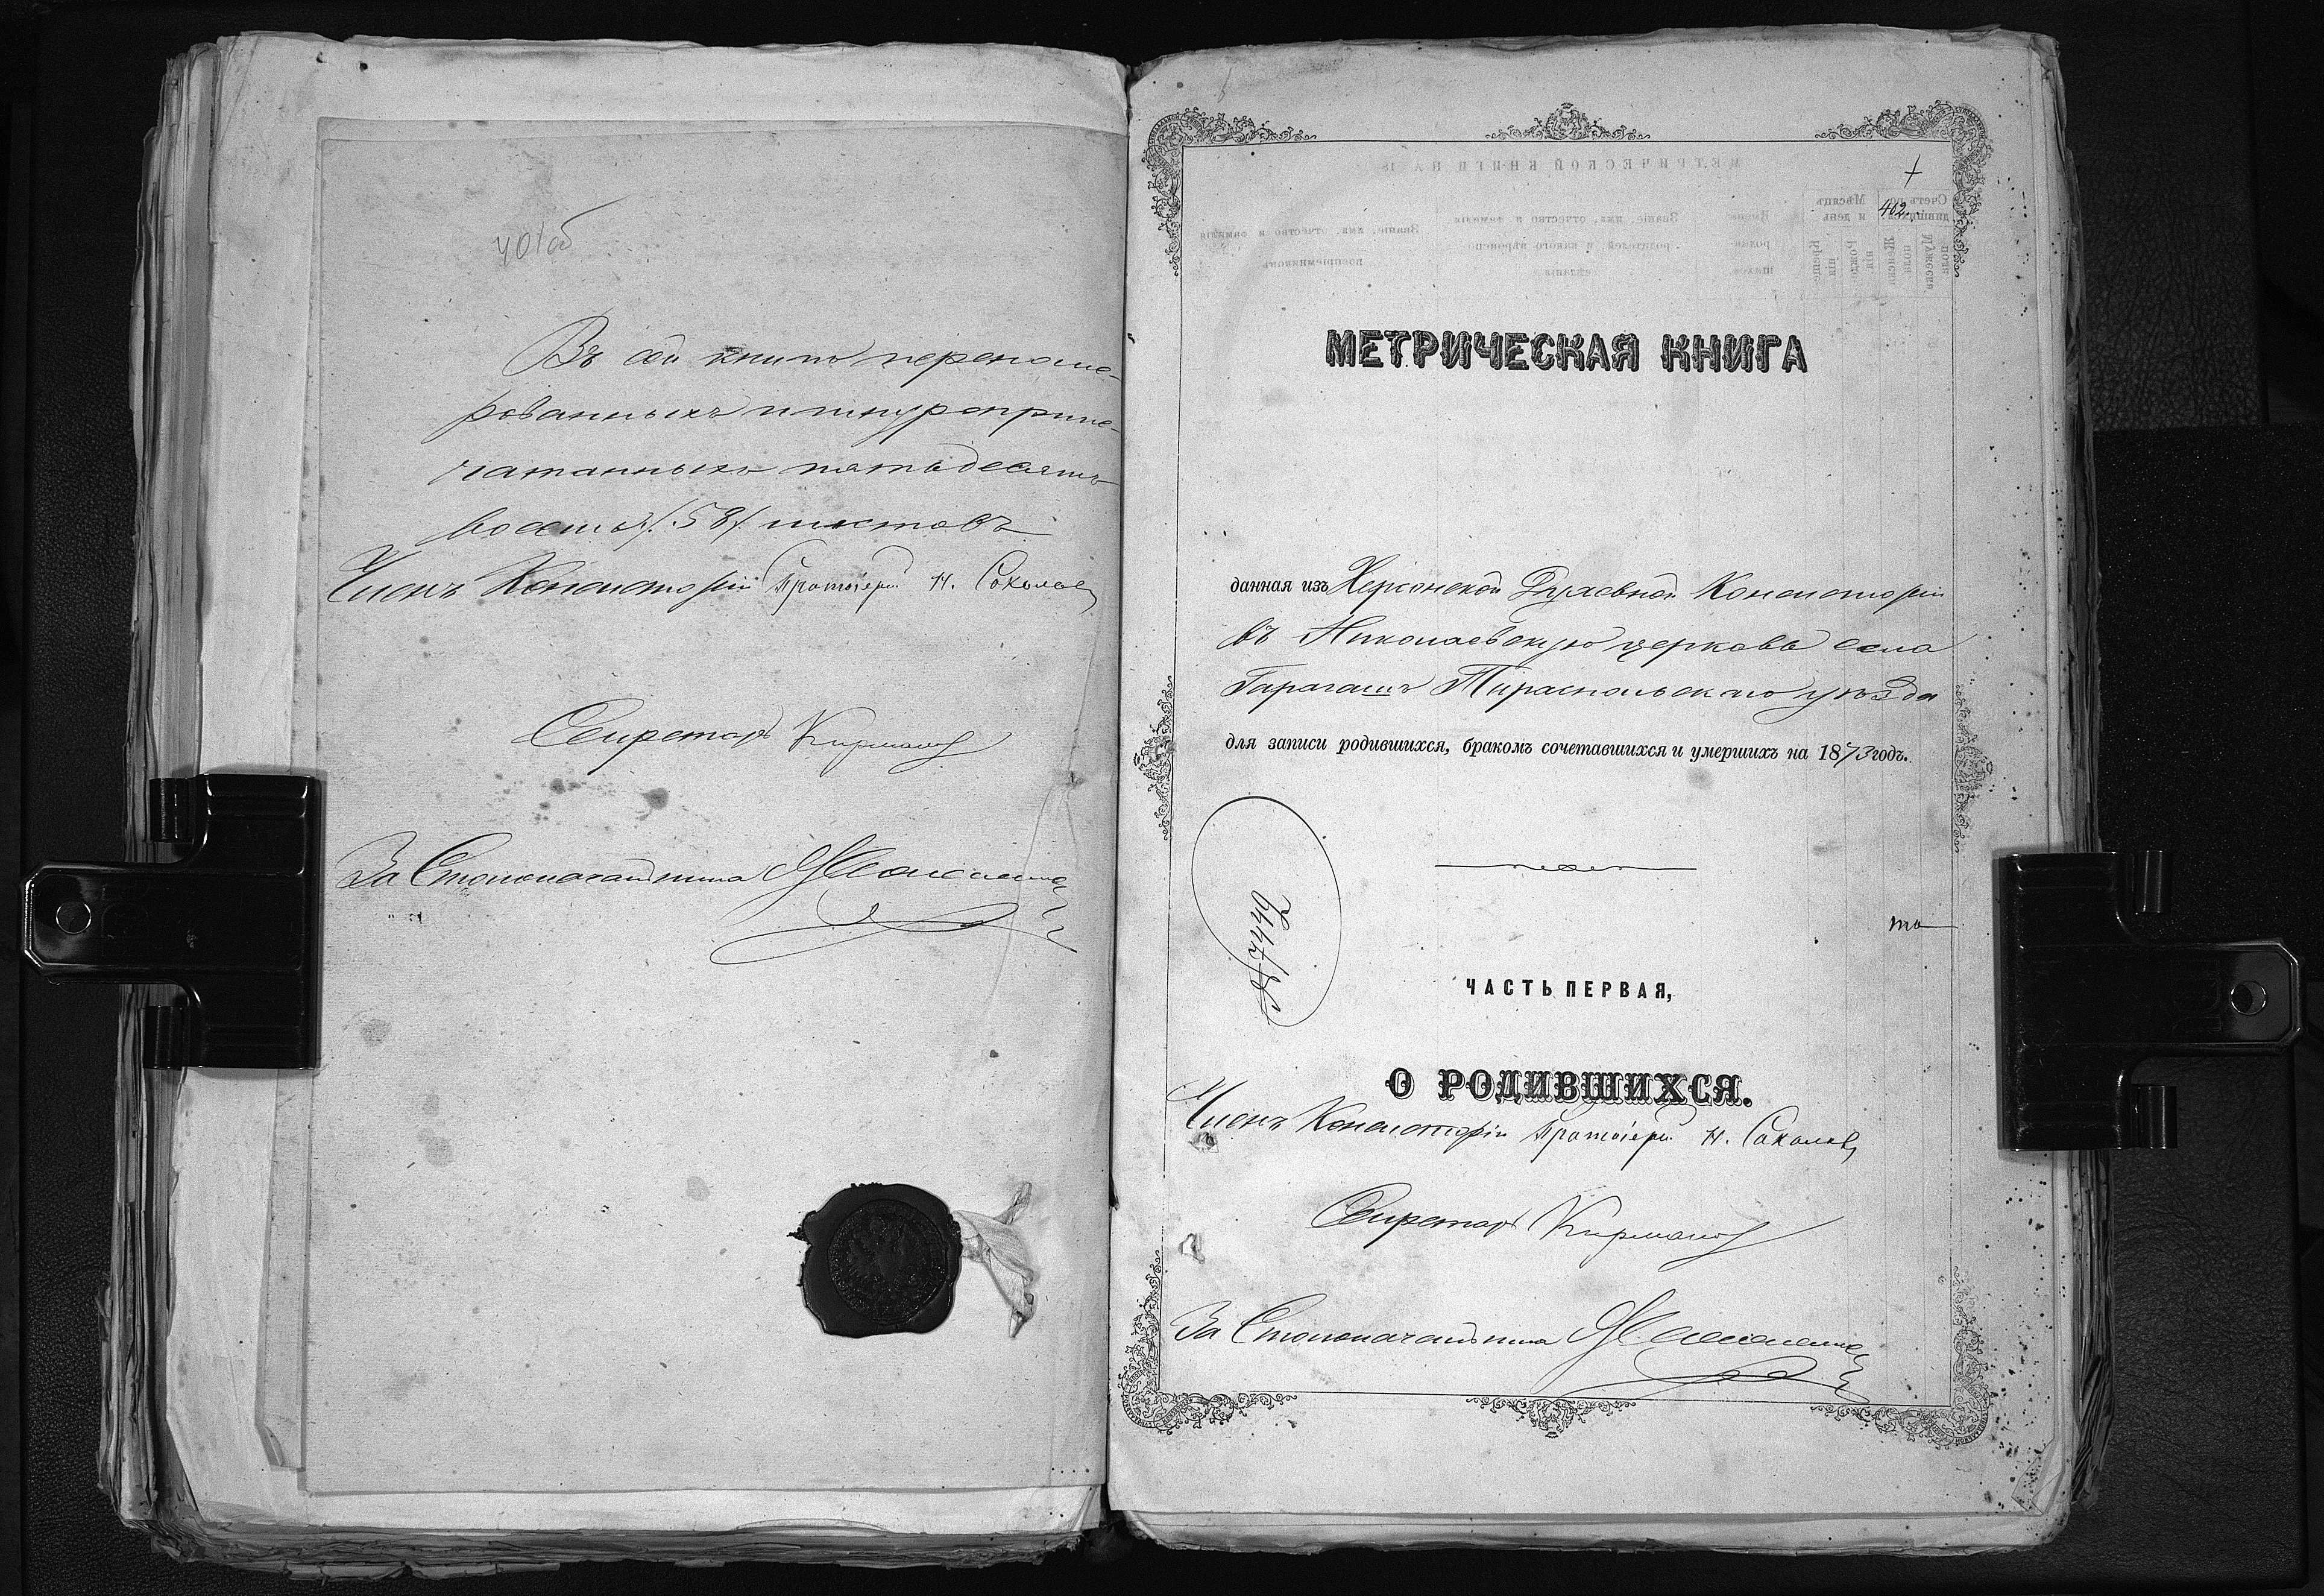 401об
Въ сей книгѣ перенуме-
рованныхъ и шнуроприпе-
чатанныхъ пятьдесятъ
восемь /.58/. листовъ
Членъ Консисторіи Протоіерей Н. Соколовъ
Секретарь
За Столоначальника
402.
МЕТРИЧЕСКАЯ КНИГА
данная изъ Херсонской Духовной Консисторіи
въ Николаевскую церковь села
Карагашъ Тираспольскаго уѣзда
для записи родившихся, бракомъ сочетавшихся и умершихъ на 1873 годъ.
№ 7449
ЧАСТЬ ПЕРВАЯ,
О РОДИВШИХСЯ.
Членъ Консисторіи Протоіерей Н. Соколовъ
Секретарь
За Столоначальника